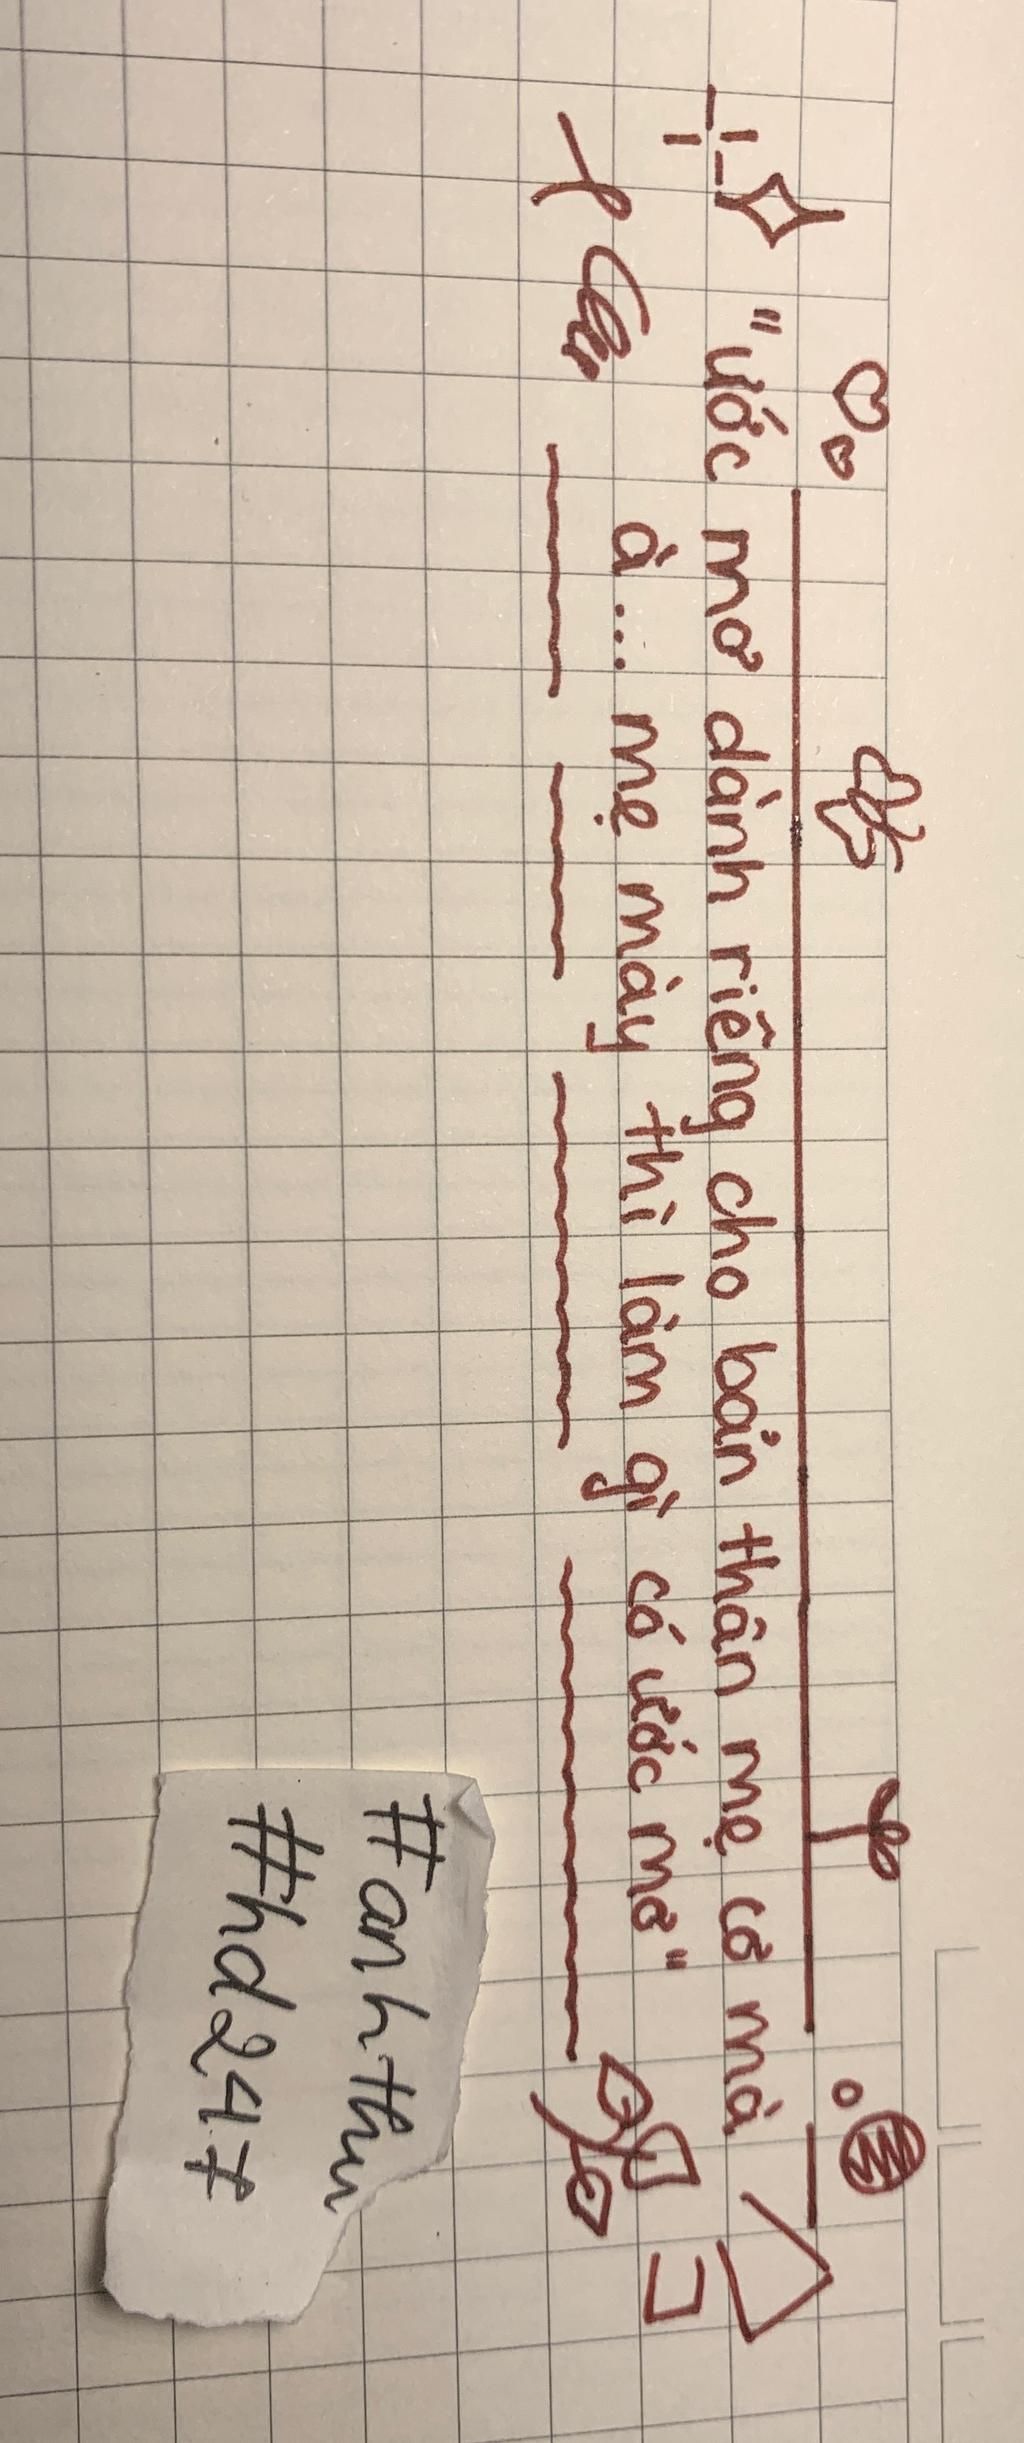 "ước mơ dành riêng cho bản thân mẹ cơ mà
à... mẹ mày thì làm gì có ước mơ"
#anhthu
#hd247